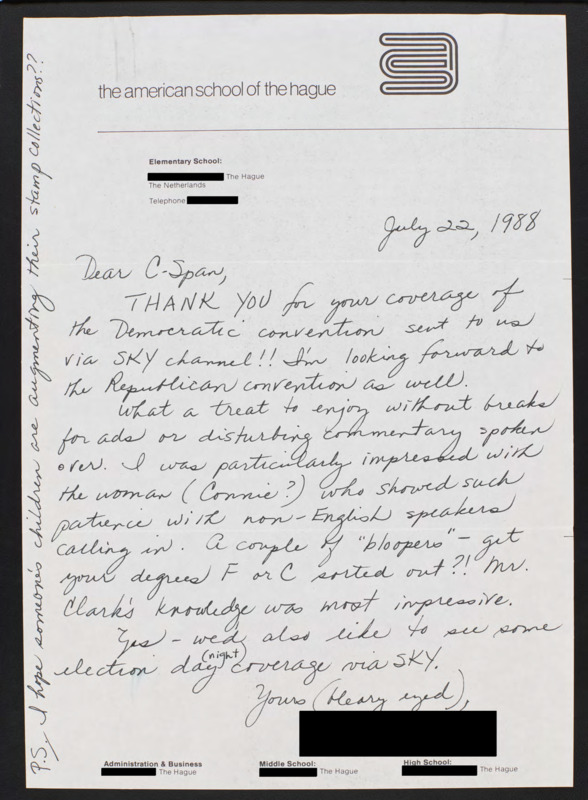 the american school of the hague
Elementary School:
The Hague
The Netherlands
Telephone
July 22, 1988
Dear C-Span,
THANK YOU for your coverage of
the Democratic convention sent to us
via SKY channel!! I'm looking forward to
the Republican convention as well.
What a treat to enjoy without breaks
for ads or disturbing commentary spoken
over. I was particularly impressed with
the woman (Connie?) who showed such
patience with non-English speakers
calling in. A couple of "bloopers" - get
your degrees F or C sorted out?! Mr.
Clark's knowledge was most impressive.
Yes - we'd also like to see some
election day (night) coverage via SKY.
Yours (bleary eyed),
P.S. I hope someone's children are augmenting their stamp collections??
Administration & Business
The Hague
Middle School:
The Hague
High School:
The Hague